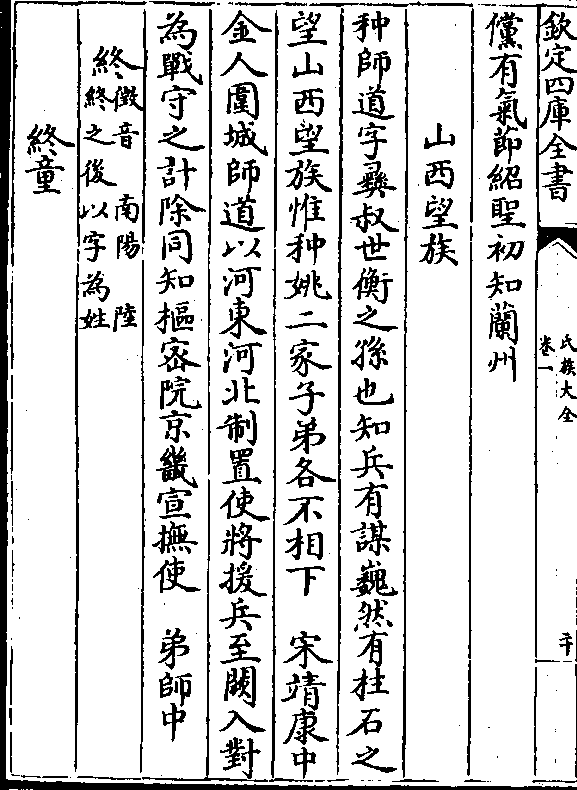 欽定四庫全書
氏族大全
卷一
二十
儻有氣節紹聖初知蘭州
山西望族
种師道字彞叔世衡之孫也知兵有謀巍然有柱石之
望山西望族惟种姚二家子弟各不相下 宋靖康中
金人圍城師道以河東河北制置使將援兵至闕入對
為戰守之計除同知樞密院京畿宣撫使 弟師中
終 徵音 南陽 陸
終之後以字為姓
終童